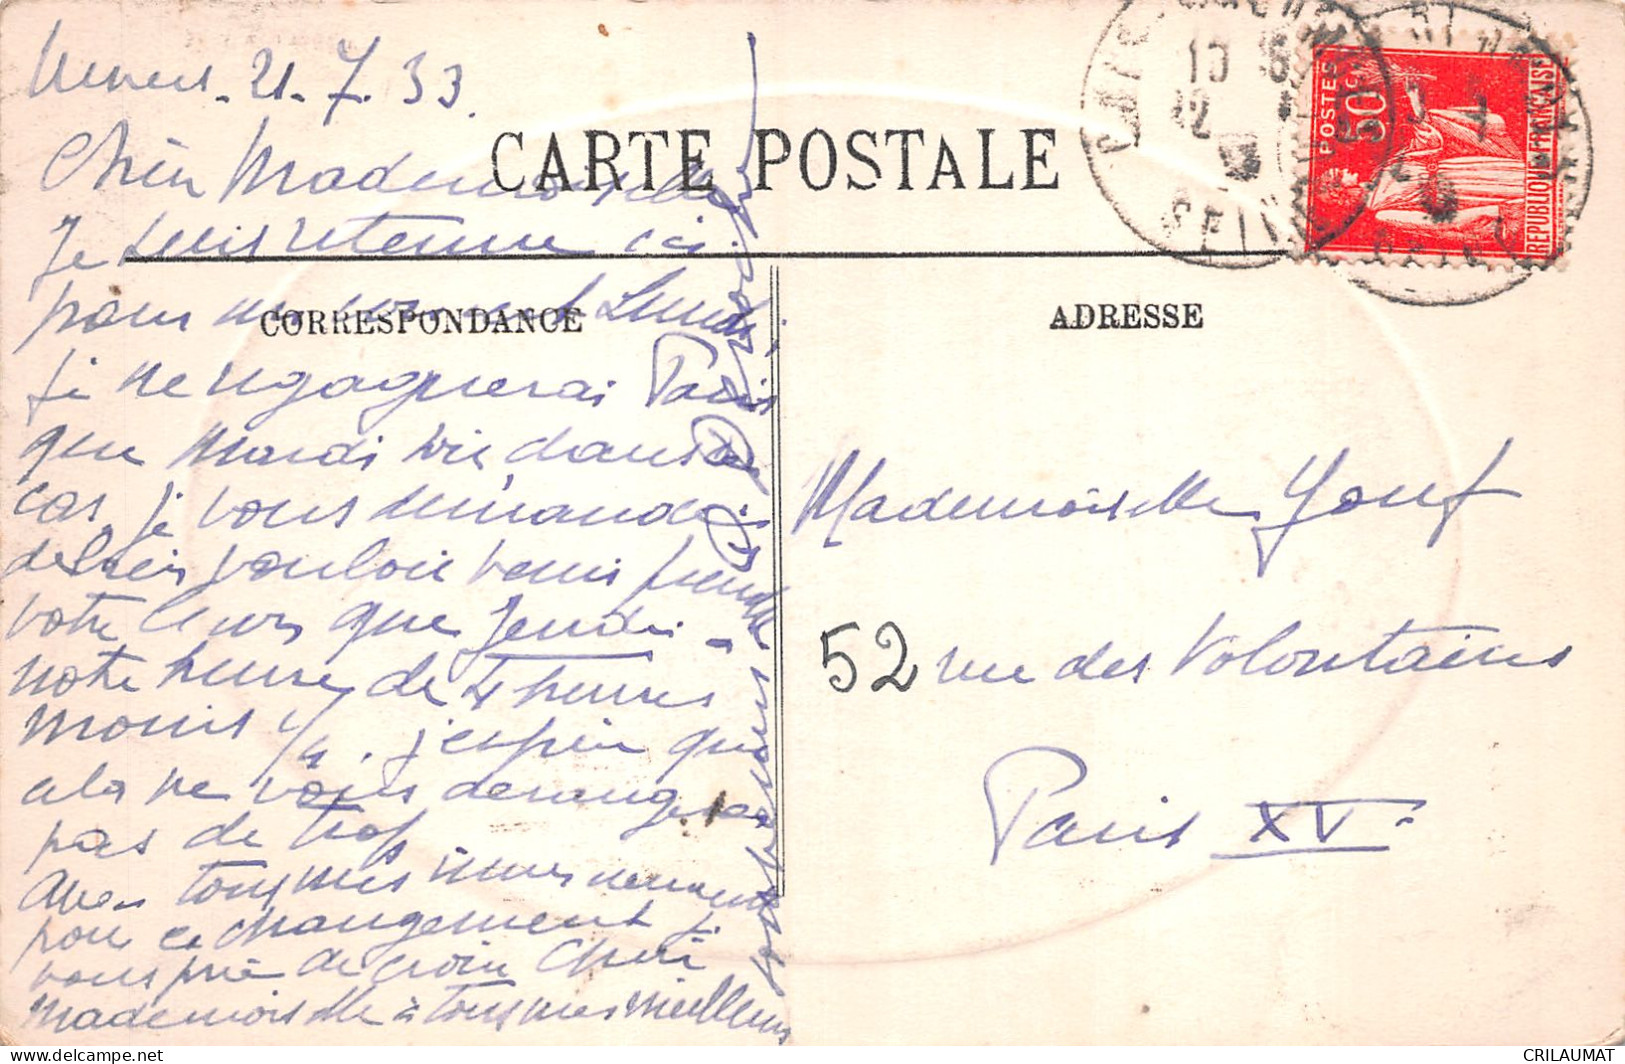 21.7.33
CARTE POSTALE
Chère Mademoiselle
Je suis retenue ici
CORRESPONDANCE
pour Lundi,
je ne regagnerai Paris
que Mardi soir dans ce
cas, je vous demanderais
de bien vouloir venir prendre
votre cours que Jeudi -
notre heure, de 4 heures
moins 1/4. j'espère que
cela ne vous dérangera
pas de trop
Avec tous mes remerciements
pour ce changement je
vous prie de croire Chère
Mademoiselle à tous mes meilleurs
ADRESSE
Mademoiselle Jouf
52 rue des Volontaires
Paris XVe
POSTES
50c
REPUBLIQUE FRANÇAISE
SEINE
CRILAUMAT